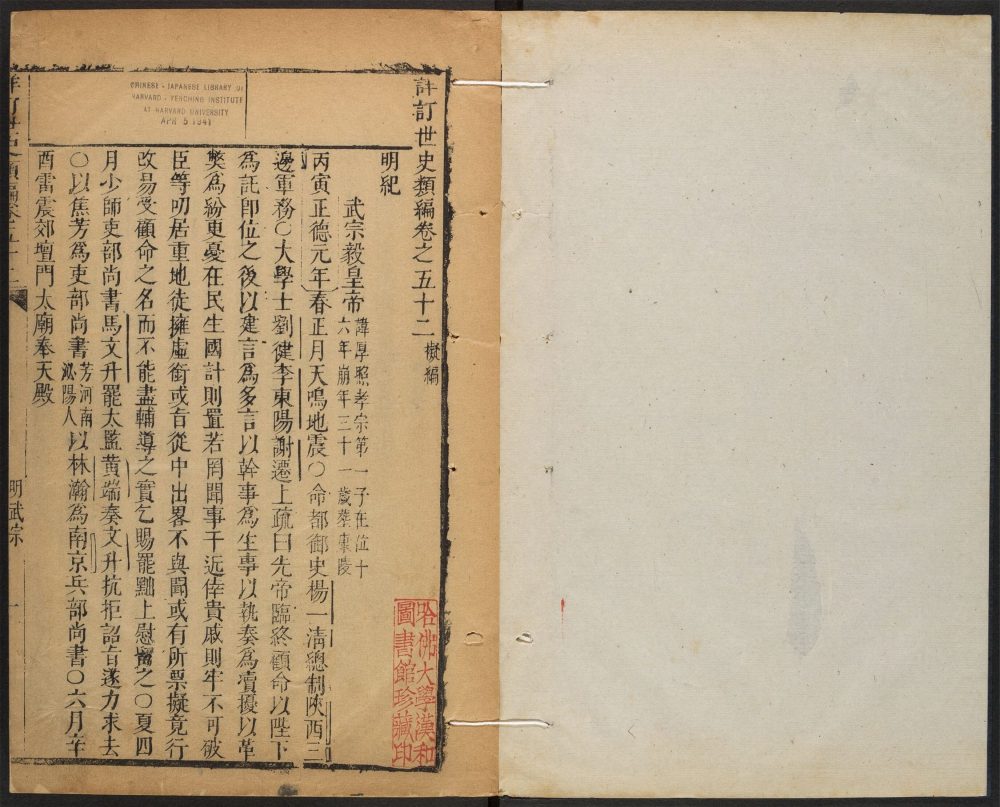 詳訂世史類編卷之五十二 檄編
明紀
武宗毅皇帝 諱厚照孝宗第一子在位十
六年崩年三十一歲葬康陵
丙寅正德元年春正月天鳴地震○命都御史楊一清總制陝西三
邊軍務○大學士劉健李東陽謝遷上疏曰先帝臨終顧命以陛下
爲託即位之後以建言爲多言以幹事爲生事以執奏爲瀆擾以革
獘爲紛更憂在民生國計則置若罔聞事干近倖貴戚則牢不可破
臣等叨居重地徒擁虛銜或旨從中出畧不與聞或有所票擬竟行
改易受顧命之名而不能盡輔導之實乞賜罷黜上慰畱之○夏四
月少師吏部尚書馬文升罷太監黃端奏文升抗拒詔旨遂力求去
○以焦芳爲吏部尚書 芳河南
泌陽人 以林瀚爲南京兵部尚書○六月辛
酉雷震郊壇門太廟奉天殿
明武宗
一
CHINESE - JAPANESE LIBRARY OF
HARVARD - YENCHING INSTITUTE
AT HARVARD UNIVERSITY
APR 5 1941
哈佛大學漢和
圖書館珍藏印